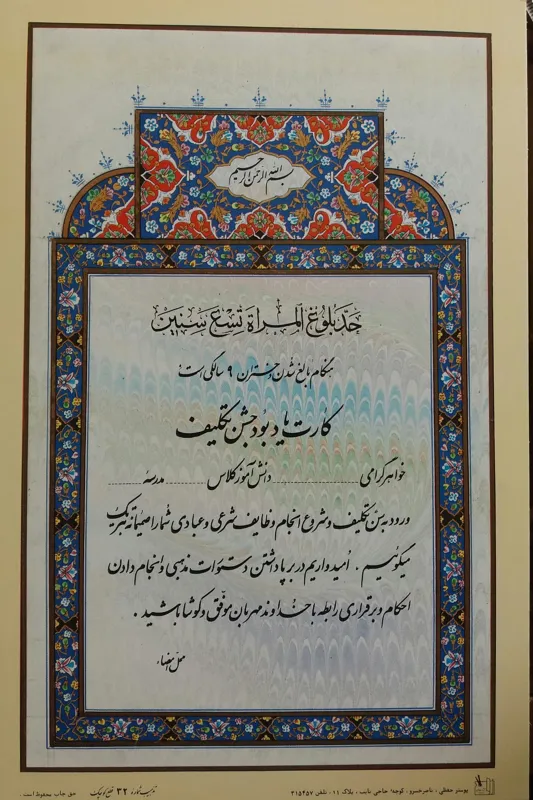 بسم الله الرحمن الرحیم
حَدّ بلُوغ المَراة تسْع سِنینَ
هنگام بالغ شدن دختران ۹ سالگی است
کارت یادبود جشن تکلیف
خواهر گرامی .................... دانش آموز کلاس .................... مدرسه
ورود به سن تکلیف و شروع انجام وظایف شرعی و عبادی شما را صمیمانه تبریک
میگوئیم . امیدواریم در برپا داشتن دستورات مذهبی و انجام دادن
احکام و برقراری رابطه با خداوند مهربان موفق و کوشا باشید .
محل امضاء
پوستر حفظی ، ناصرخسرو ، کوچه حاجی نایب ، پلاک ۱۱ ، تلفن ۳۱۵۴۵۷
۳۲
حق چاپ محفوظ است .